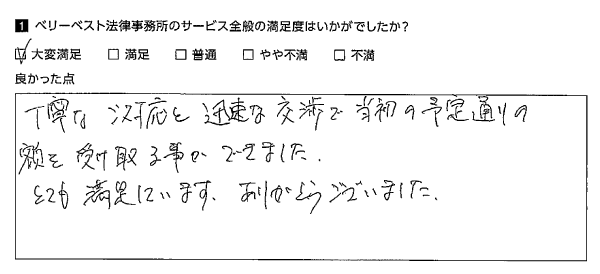 1 ベリーベスト法律事務所のサービス全般の満足度はいかがでしたか?
☑ 大変満足 □ 満足 □ 普通 □ やや不満 □ 不満
良かった点
丁寧な対応と迅速な交渉で当初の予定通りの
額を受け取る事ができました.
とても満足しています. ありがとうございました.